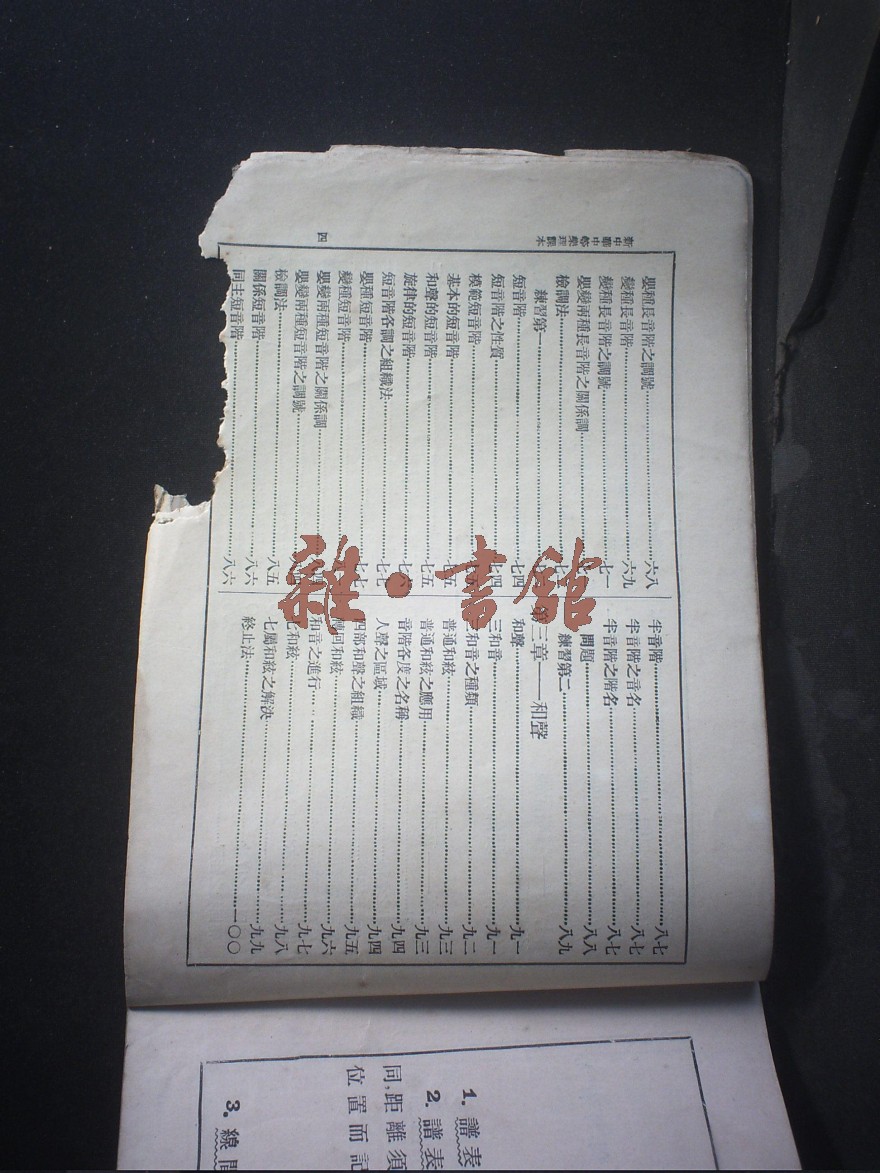 新中華中樂理課本
四
嬰種長音階之調號……六八
變種長音階……六九
變種長音階之調號……七一
嬰變兩種長音階之關係調……
檢調法……
練習第一……
短音階……七四
短音階之性質……七四
模範短音階……
基本的短音階……
和聲的短音階……七五
旋律的短音階……
短音階各調之組織法……七七
嬰種短音階……七七
變種短音階……
嬰變兩種短音階之關係調……
嬰變兩種短音階之調號……
檢調法……八五
關係短音階……八六
同主短音階……八六
半音階……八七
半音階之音名……八七
半音階之階名……八七
問題……八八
練習第二……八九
第三章——和聲
和聲……九一
三和音……九一
三和音之種類……九二
普通和絃……九三
普通和絃之應用……九三
音階各度之名稱……九四
人聲之區域……九四
四部和聲之組織……九五
轉回和絃……九六
和音之進行……九七
七和絃……九八
七屬和絃之解決……九九
終止法……一〇〇
1. 譜表
2. 譜表
同,距離須
位置而記
3. 線間